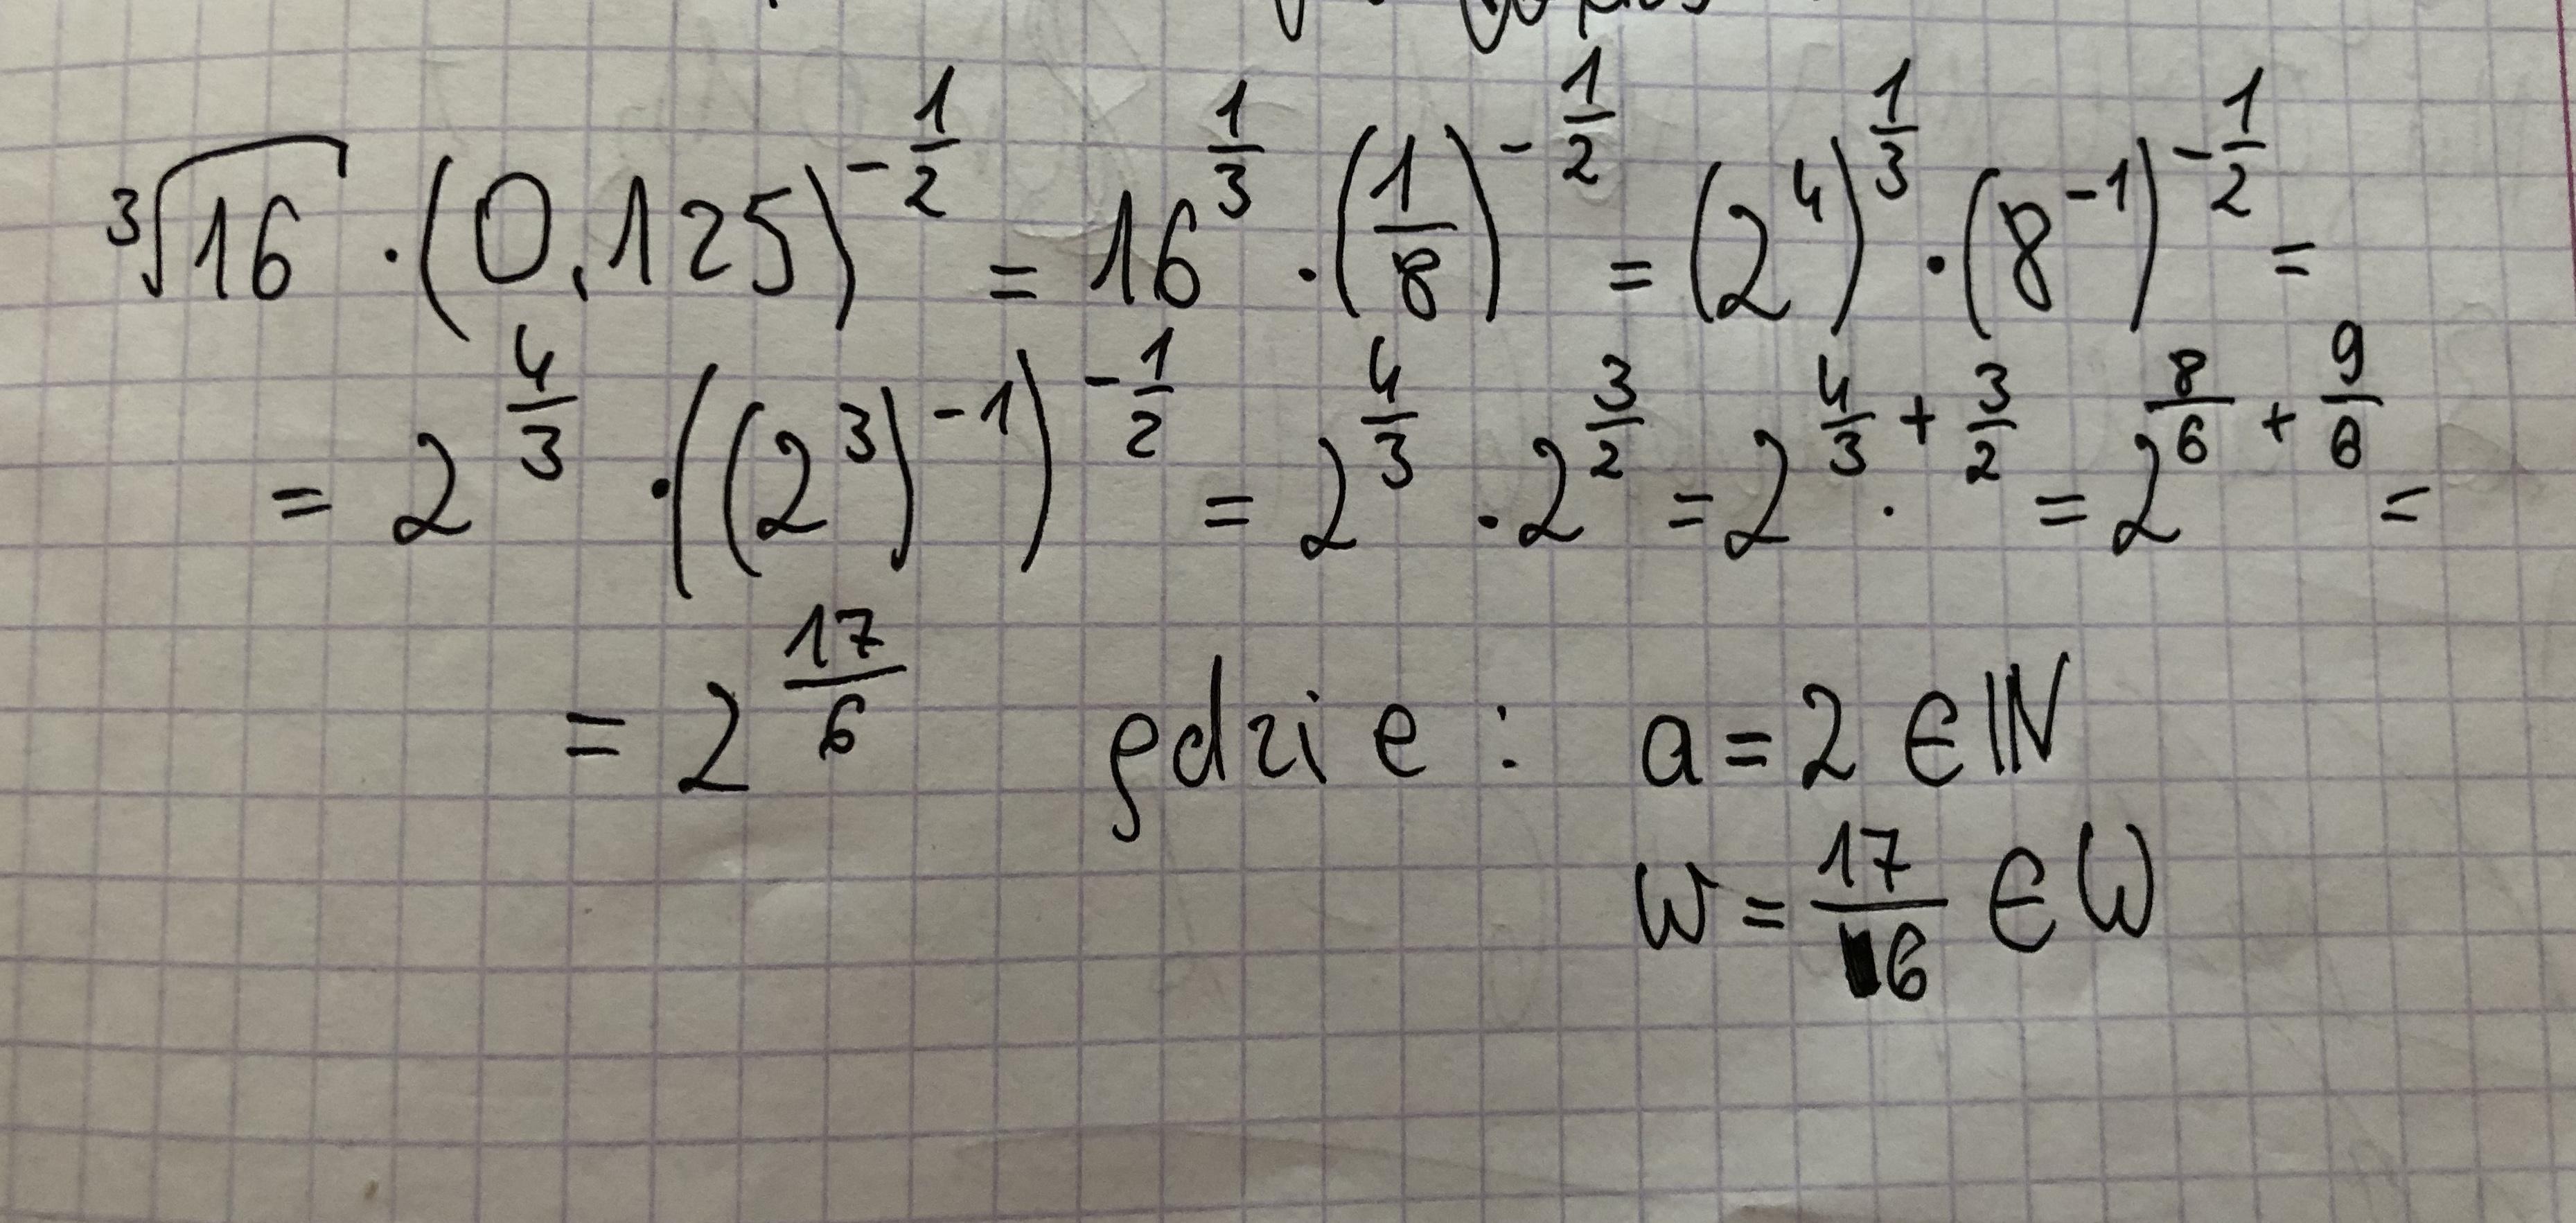 ∛16 · (0,125)^(-1/2) = 16^(1/3) · (1/8)^(-1/2) = (2^4)^(1/3) · (8^(-1))^(-1/2) =
= 2^(4/3) · ((2^3)^(-1))^(-1/2) = 2^(4/3) · 2^(3/2) = 2^(4/3 + 3/2) = 2^(8/6 + 9/6) =
= 2^(17/6) gdzie : a = 2 ∈ ℕ
w = 17/6 ∈ W